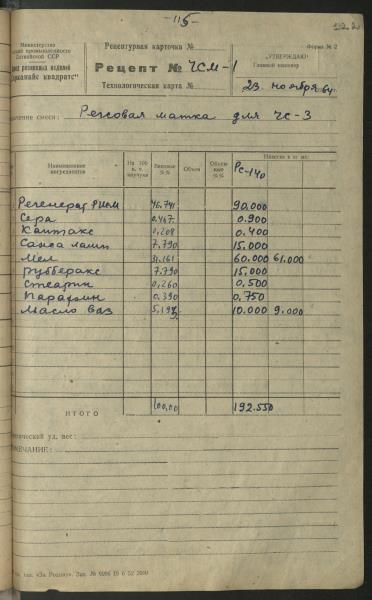 -115-
Министерство
Рецептурная карточка №
Форма № 2
промышленности
Латвийской ССР
"УТВЕРЖДАЮ"
Рецепт № ЧСМ-1
Главный инженер
завод резиновых изделий
квадратс"
Технологическая карта №
23 ноября 64.
смеси: Рецовая матка для ЧС-3
Наименование ингредиентов
На 100 в. ч. каучука
Весовые %%
Объем
Объемные %%
Навеска в кг на:
РС-140
Регенерат РШМ 46.741 90.000
Сера 0.467 0.900
Каптакс 0.208 0.400
Сажа ламп 7.790 15.000
Мел 31.161 60.000 61.000
Рубберакс 7.790 15.000
Стеарин 0.260 0.500
Парафин 0.390 0.750
Масло ваз 5.193 10.000 9.000
ИТОГО 100,00 192.550
уд. вес:
тип. «За Родину». Зак. №